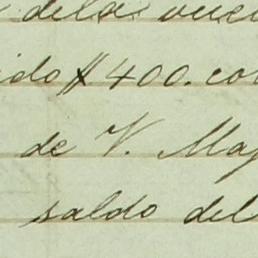 dela
ido $400. co
de V. Maj
saldo del